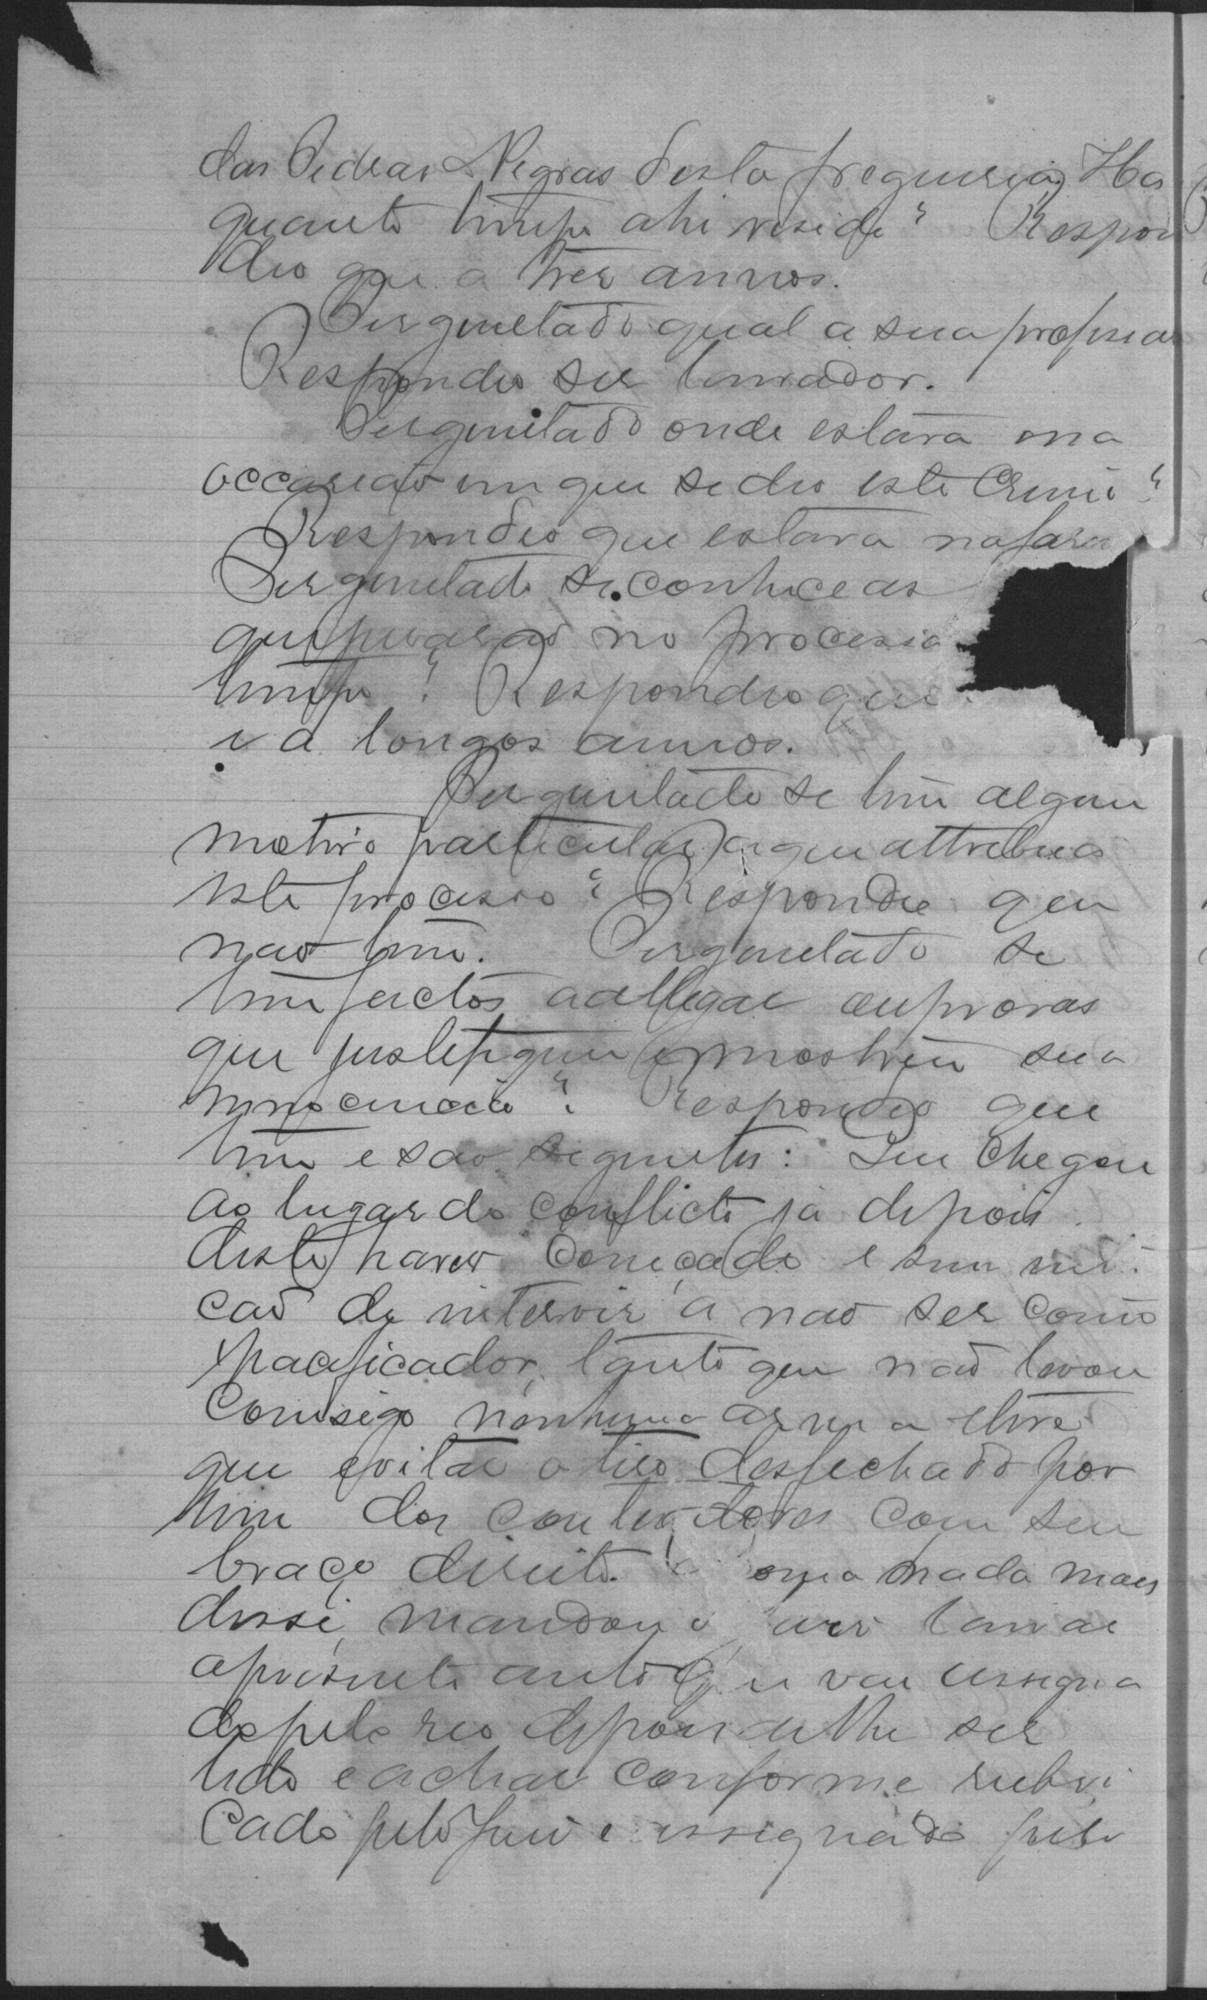 das Pedras Negras desta freguesia, Ha
quanto tempo ahi reside? Respon
deo que a tres annos.
Perguntado qual a sua
Respondeo ser lavrador.
Perguntado onde estava na
occasião em que se deo este Crime?
Respondeo que estava na
Perguntado se conhece as
que juraram no processo
tempo? Respondeo que
a longos annos.
Perguntado se tem algum
motivo particular a que attribua
este processo? Respondeo que
não tem. Perguntado se
tem factos a allegar ou provas
que justifiquem e mostrem sua
innocencia? Respondeo que
tem e são seguintes: Que chegou
ao lugar do conflicto já depois
deste haver começado e sem
ção de intervir a não ser como
pacificador, tanto que não levou
comsigo nenhuma arma e teve
que evitar o tiro desfechado por
um dos contendores com seu
braço direito. E como nada mais
disse, mandou o juiz lavrar
o presente auto que vai assigna
do pelo reo depois de lhe ser
lido e achar conforme rubri
cado pelo juiz e assignado pelo